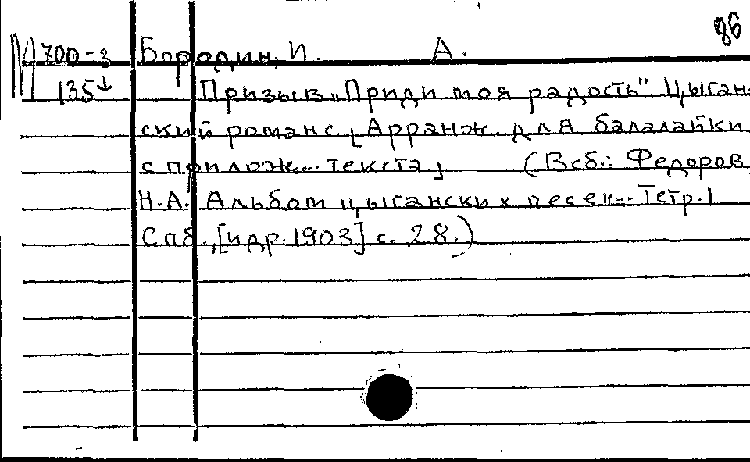 86
М 700-3 Бородин, И. А.
135 Призыв. „Приди моя радость" Цыган-
ский романс [Арранж. для балалайки
с прилож... текста] (В сб.: Федоров
Н.А. Альбом цыганских песен... Тетр. 1
Спб., [ц др. 1903] с. 28.)